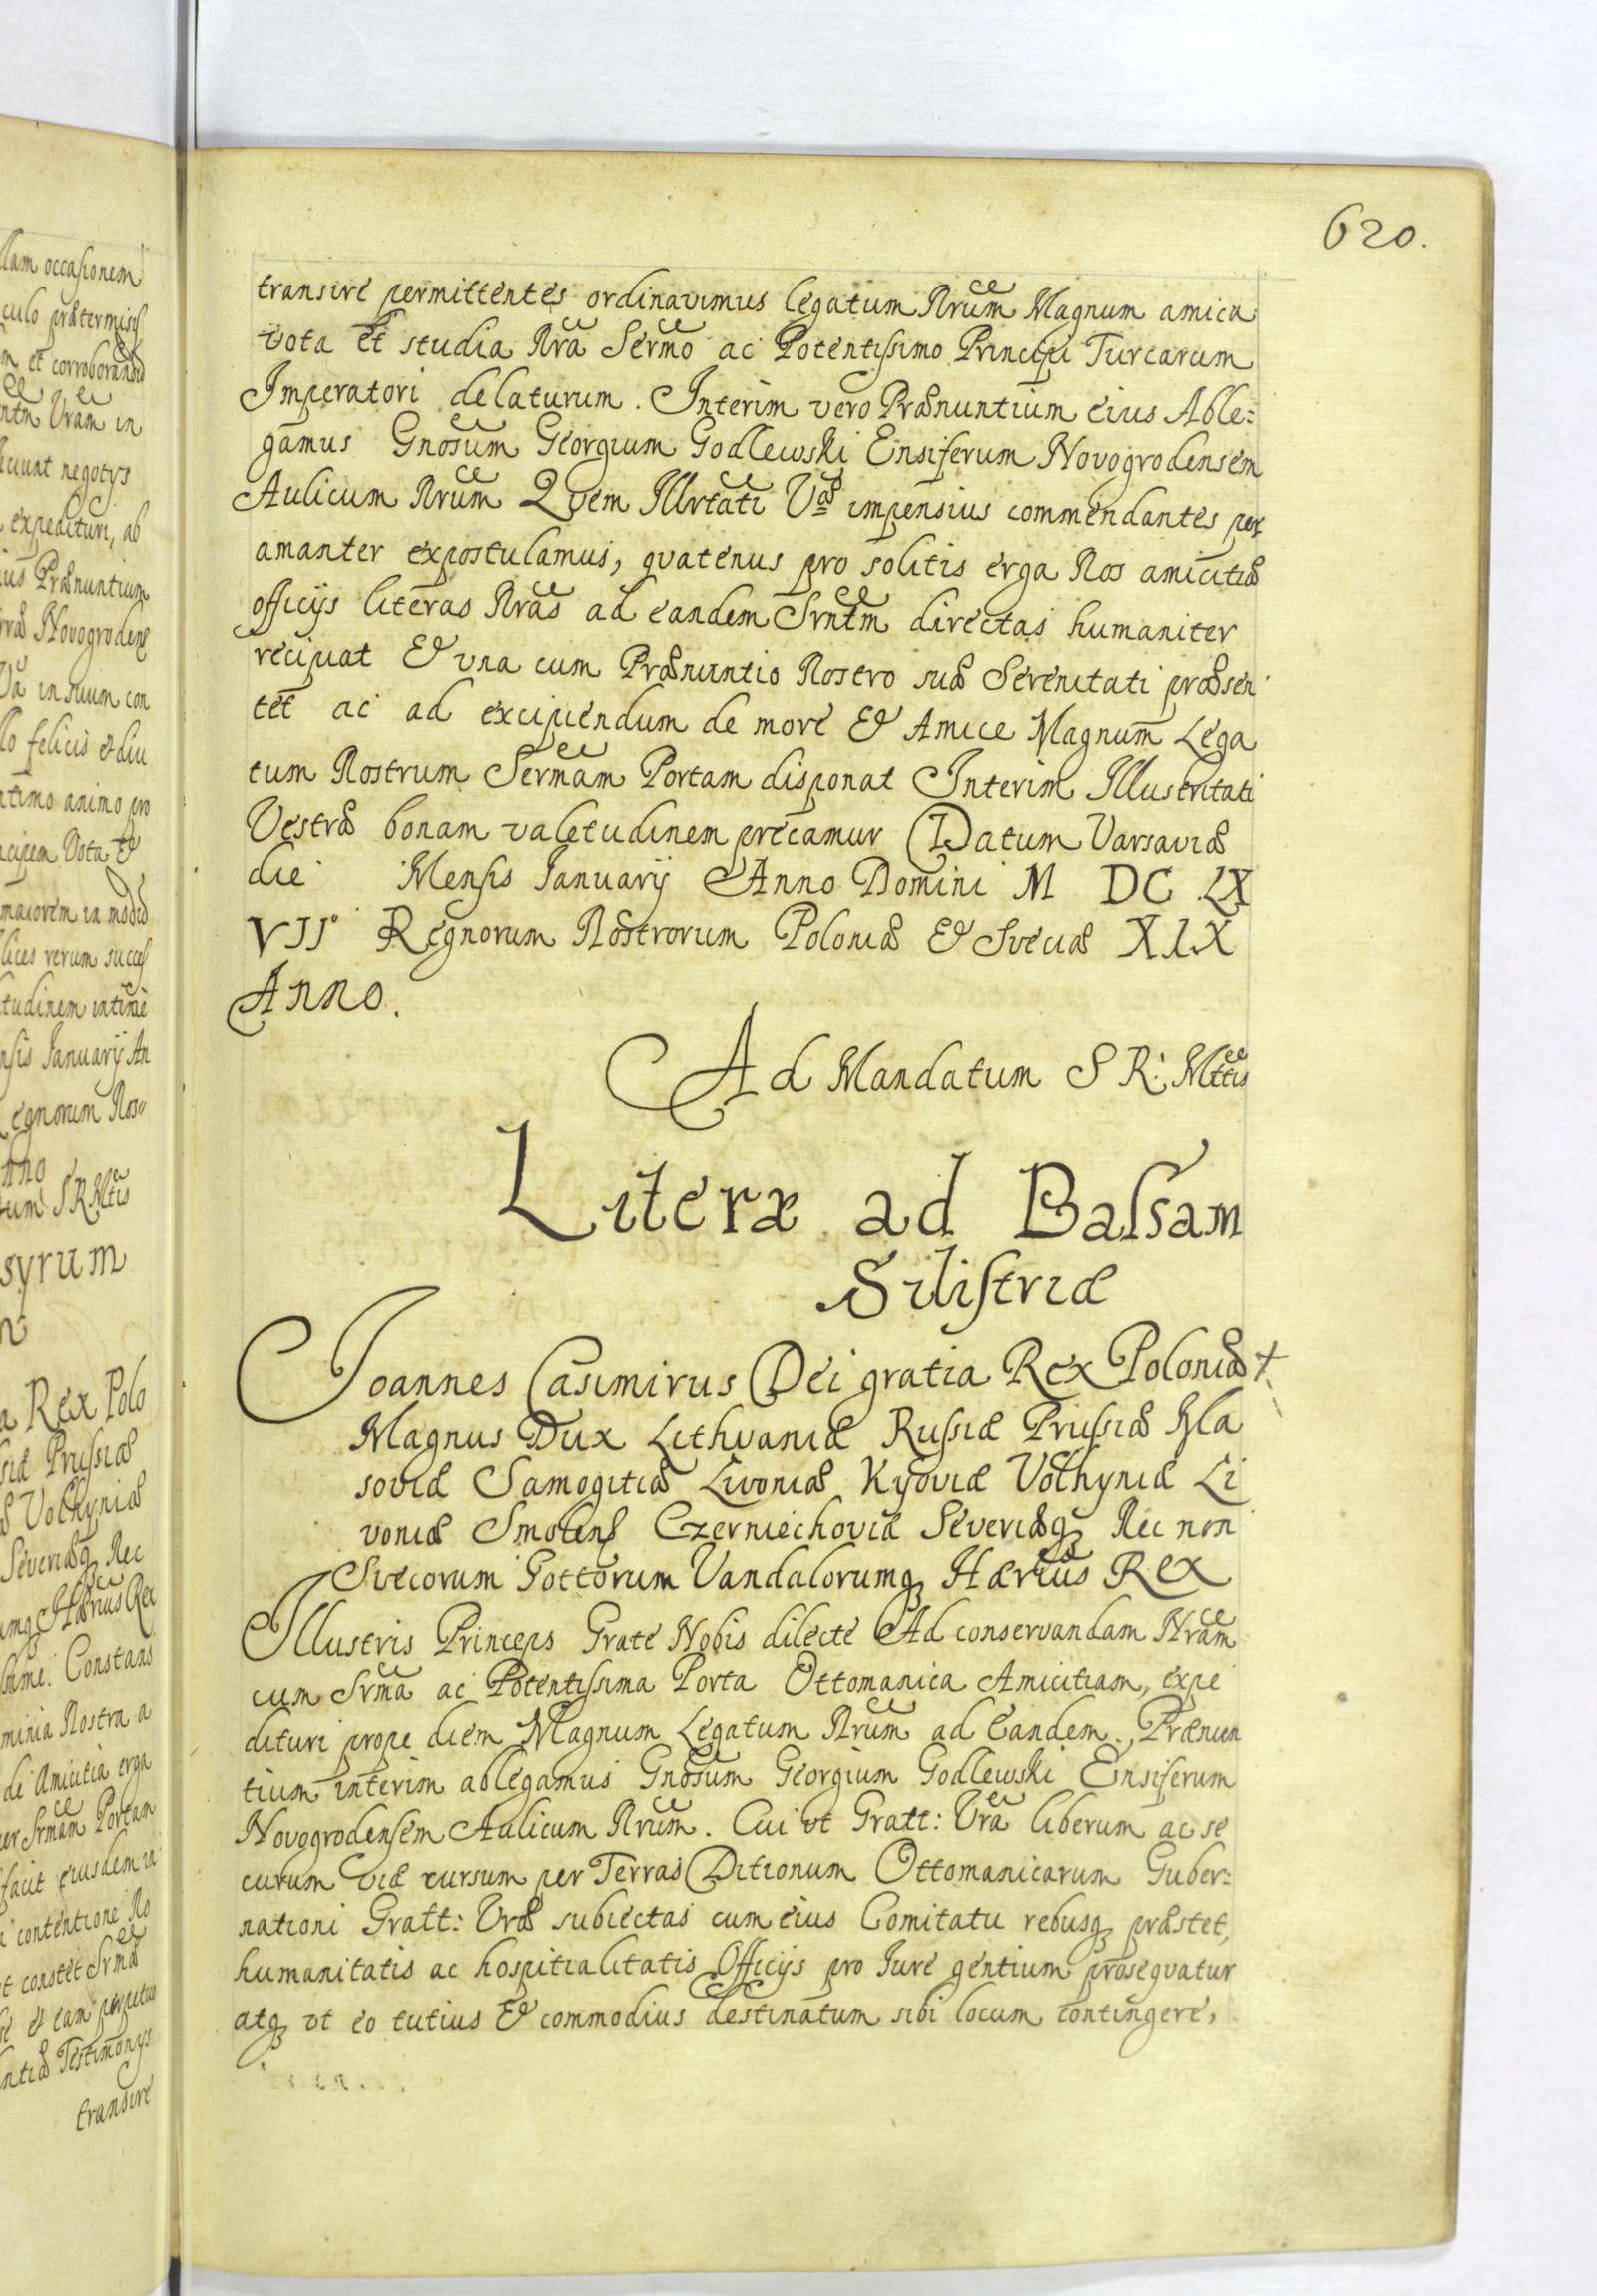 620.
transire permittentes ordinavimus legatum Nrum Magnum amica
vota et studia Nra Sermo ac Potentissimo Principi Turcarum
Imperatori delaturum. Interim vero Prænuntium eius Able:
gamus Gnosum Georgium Godlewski Ensiferum Novogrodensem
Aulicum Nrum Quem Illrtati Væ impensius commendantes per
amanter expostulamus, quatenus pro solitis erga Nos amicitiæ
officijs literas Nras ad eandem Srntm directas humaniter
recipiat & una cum Prænuntio Nostro suæ Serenitati præsen
tet ac ad excipiendum de more & Amice Magnum Lega
tum Nostrum Sermam Portam disponat Interim Illustritati
Vestræ bonam valetudinem precamur Datum Varsaviæ
die Mensis Januarij Anno Domini M DC LX
VII° Regnorum Nostrorum Poloniæ & Sveciæ XIX
Anno.
Ad Mandatum S R: Mttis
Literæ ad Bassam
Silistriæ
Joannes Casimirus Dei gratia Rex Poloniæ
Magnus Dux Lithvaniæ Russiæ Prussiæ Ma
soviæ Samogitiæ Livoniæ Kyoviæ Volhyniæ Li
voniæ Smolens Czerniechoviæ Severiæq Nec non
Svecorum Gottorum Vandalorumq Hærius Rex
Illustris Princeps Grate Nobis dilecte Ad conservandam Nram
cum Srma ac Potentissima Porta Ottomanica Amicitiam, expe
dituri prope diem Magnum Legatum Nrum ad Eandem, Prænun
tium interim ablegamus Gnosum Georgium Godlewski Ensiferum
Novogrodensem Aulicum Nrum. Cui ut Gratt: Vra liberum ac se
curum viæ cursum per Terras Ditionum Ottomanicarum Guber:
nationi Gratt: Vræ subiectas cum eius Comitatu rebusq præstet,
humanitatis ac hospitialitatis Officijs pro Jure gentium prosequatur
atq ut eo tutius & commodius destinatum sibi locum contingere,